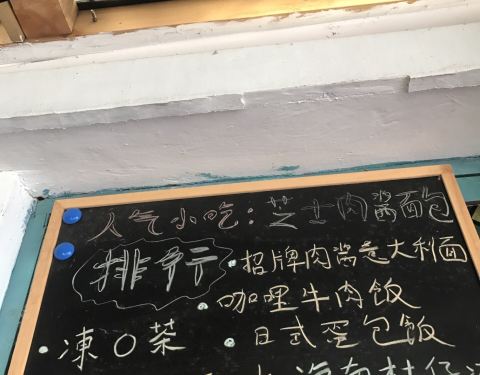 人气小吃：芝士肉酱面包
排行
·招牌肉酱意大利面
·咖哩牛肉饭
·凍O茶
·日式蛋包飯